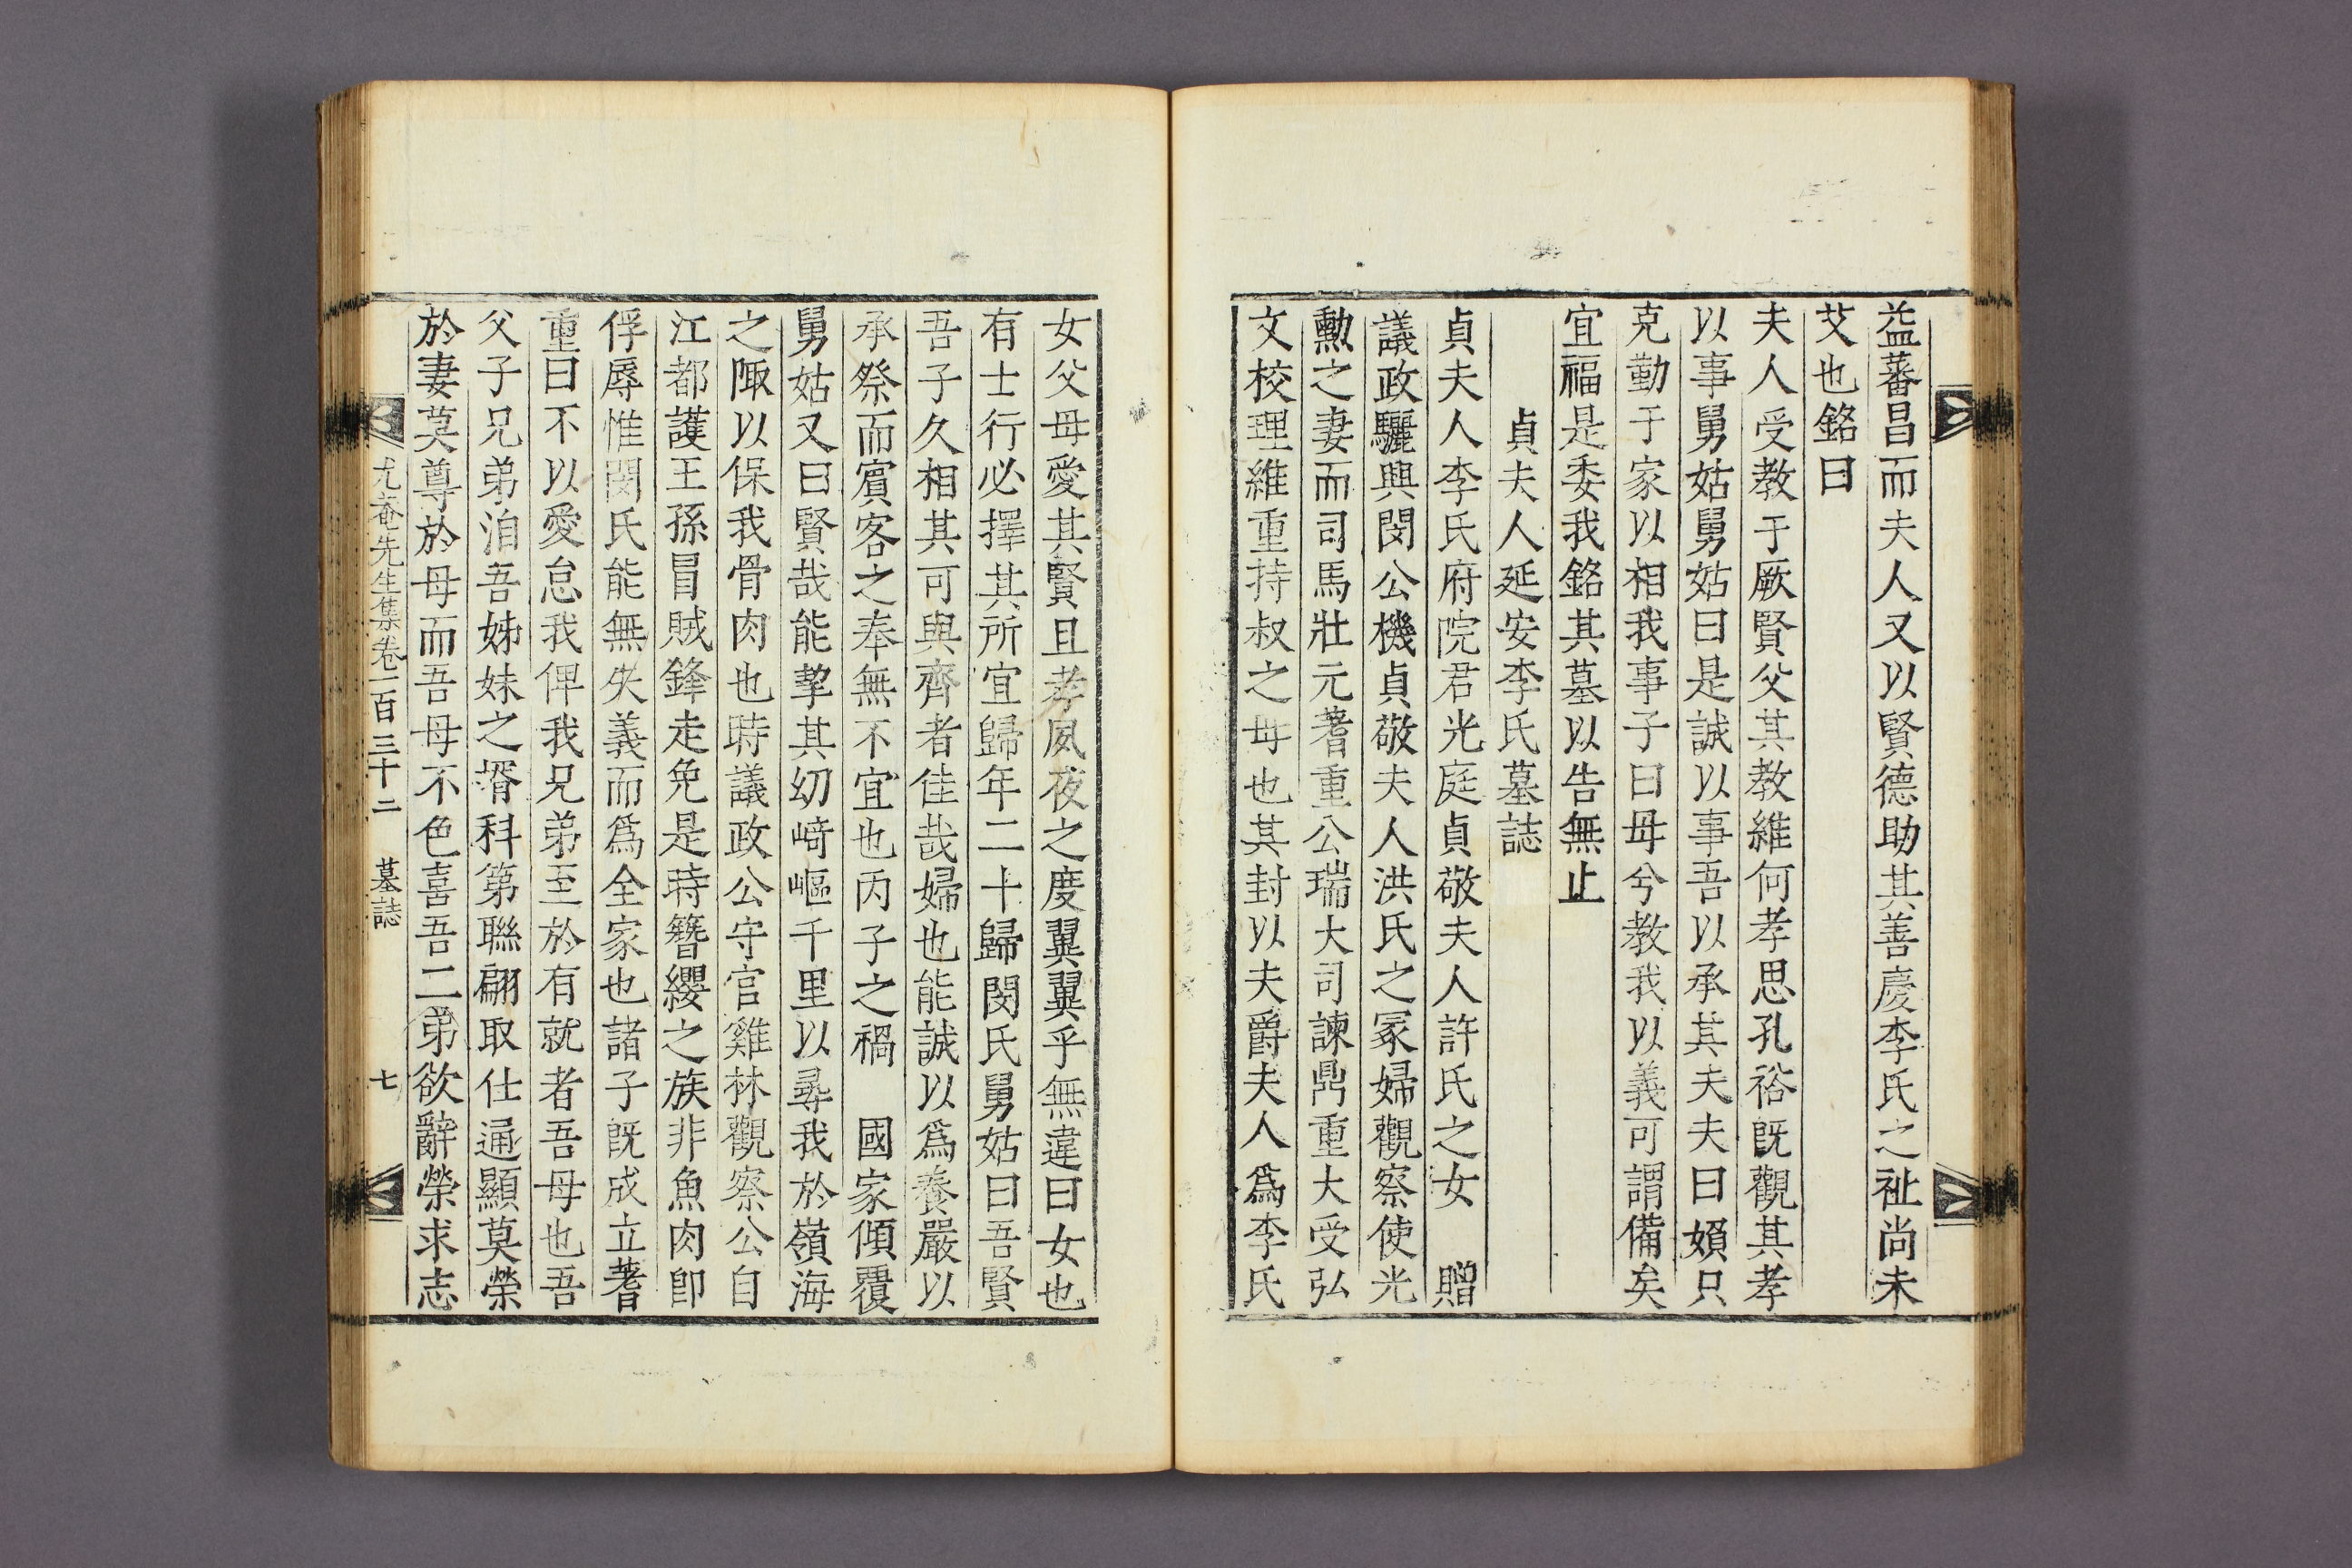 益蕃昌而夫人又以賢德助其善慶李氏之祉尚未
艾也銘曰
夫人受教于厥賢父其教維何孝思孔裕旣觀其孝
以事舅姑舅姑曰是誠以事吾以承其夫夫曰嬪只
克勤于家以相我事子曰母兮教我以義可謂備矣
宜福是委我銘其墓以告無止
貞夫人延安李氏墓誌
貞夫人李氏府院君光庭貞敬夫人許氏之女 贈
議政驪興閔公機貞敬夫人洪氏之冢婦觀察使光
勳之妻而司馬壯元蓍重公瑞大司諫鼎重大受弘
文校理維重持叔之母也其封以夫爵夫人爲李氏
女父母愛其賢且孝夙夜之度翼翼乎無違曰女也
有士行必擇其所宜歸年二十歸閔氏舅姑曰吾賢
吾子久相其可與齊者佳哉婦也能誠以爲養嚴以
承祭而賓客之奉無不宜也丙子之禍 國家傾覆
舅姑又曰賢哉能挈其幼崎嶇千里以尋我於嶺海
之陬以保我骨肉也時議政公守官雞林觀察公自
江都護王孫冒賊鋒走免是時簪纓之族非魚肉卽
俘辱惟閔氏能無失義而爲全家也諸子旣成立蓍
重曰不以愛怠我俾我兄弟至於有就者吾母也吾
父子兄弟洎吾姊妹之壻科第聯翩取仕通顯莫榮
於妻莫尊於母而吾母不色喜吾二弟欲辭榮求志
尤菴先生集卷一百三十二 墓誌 七